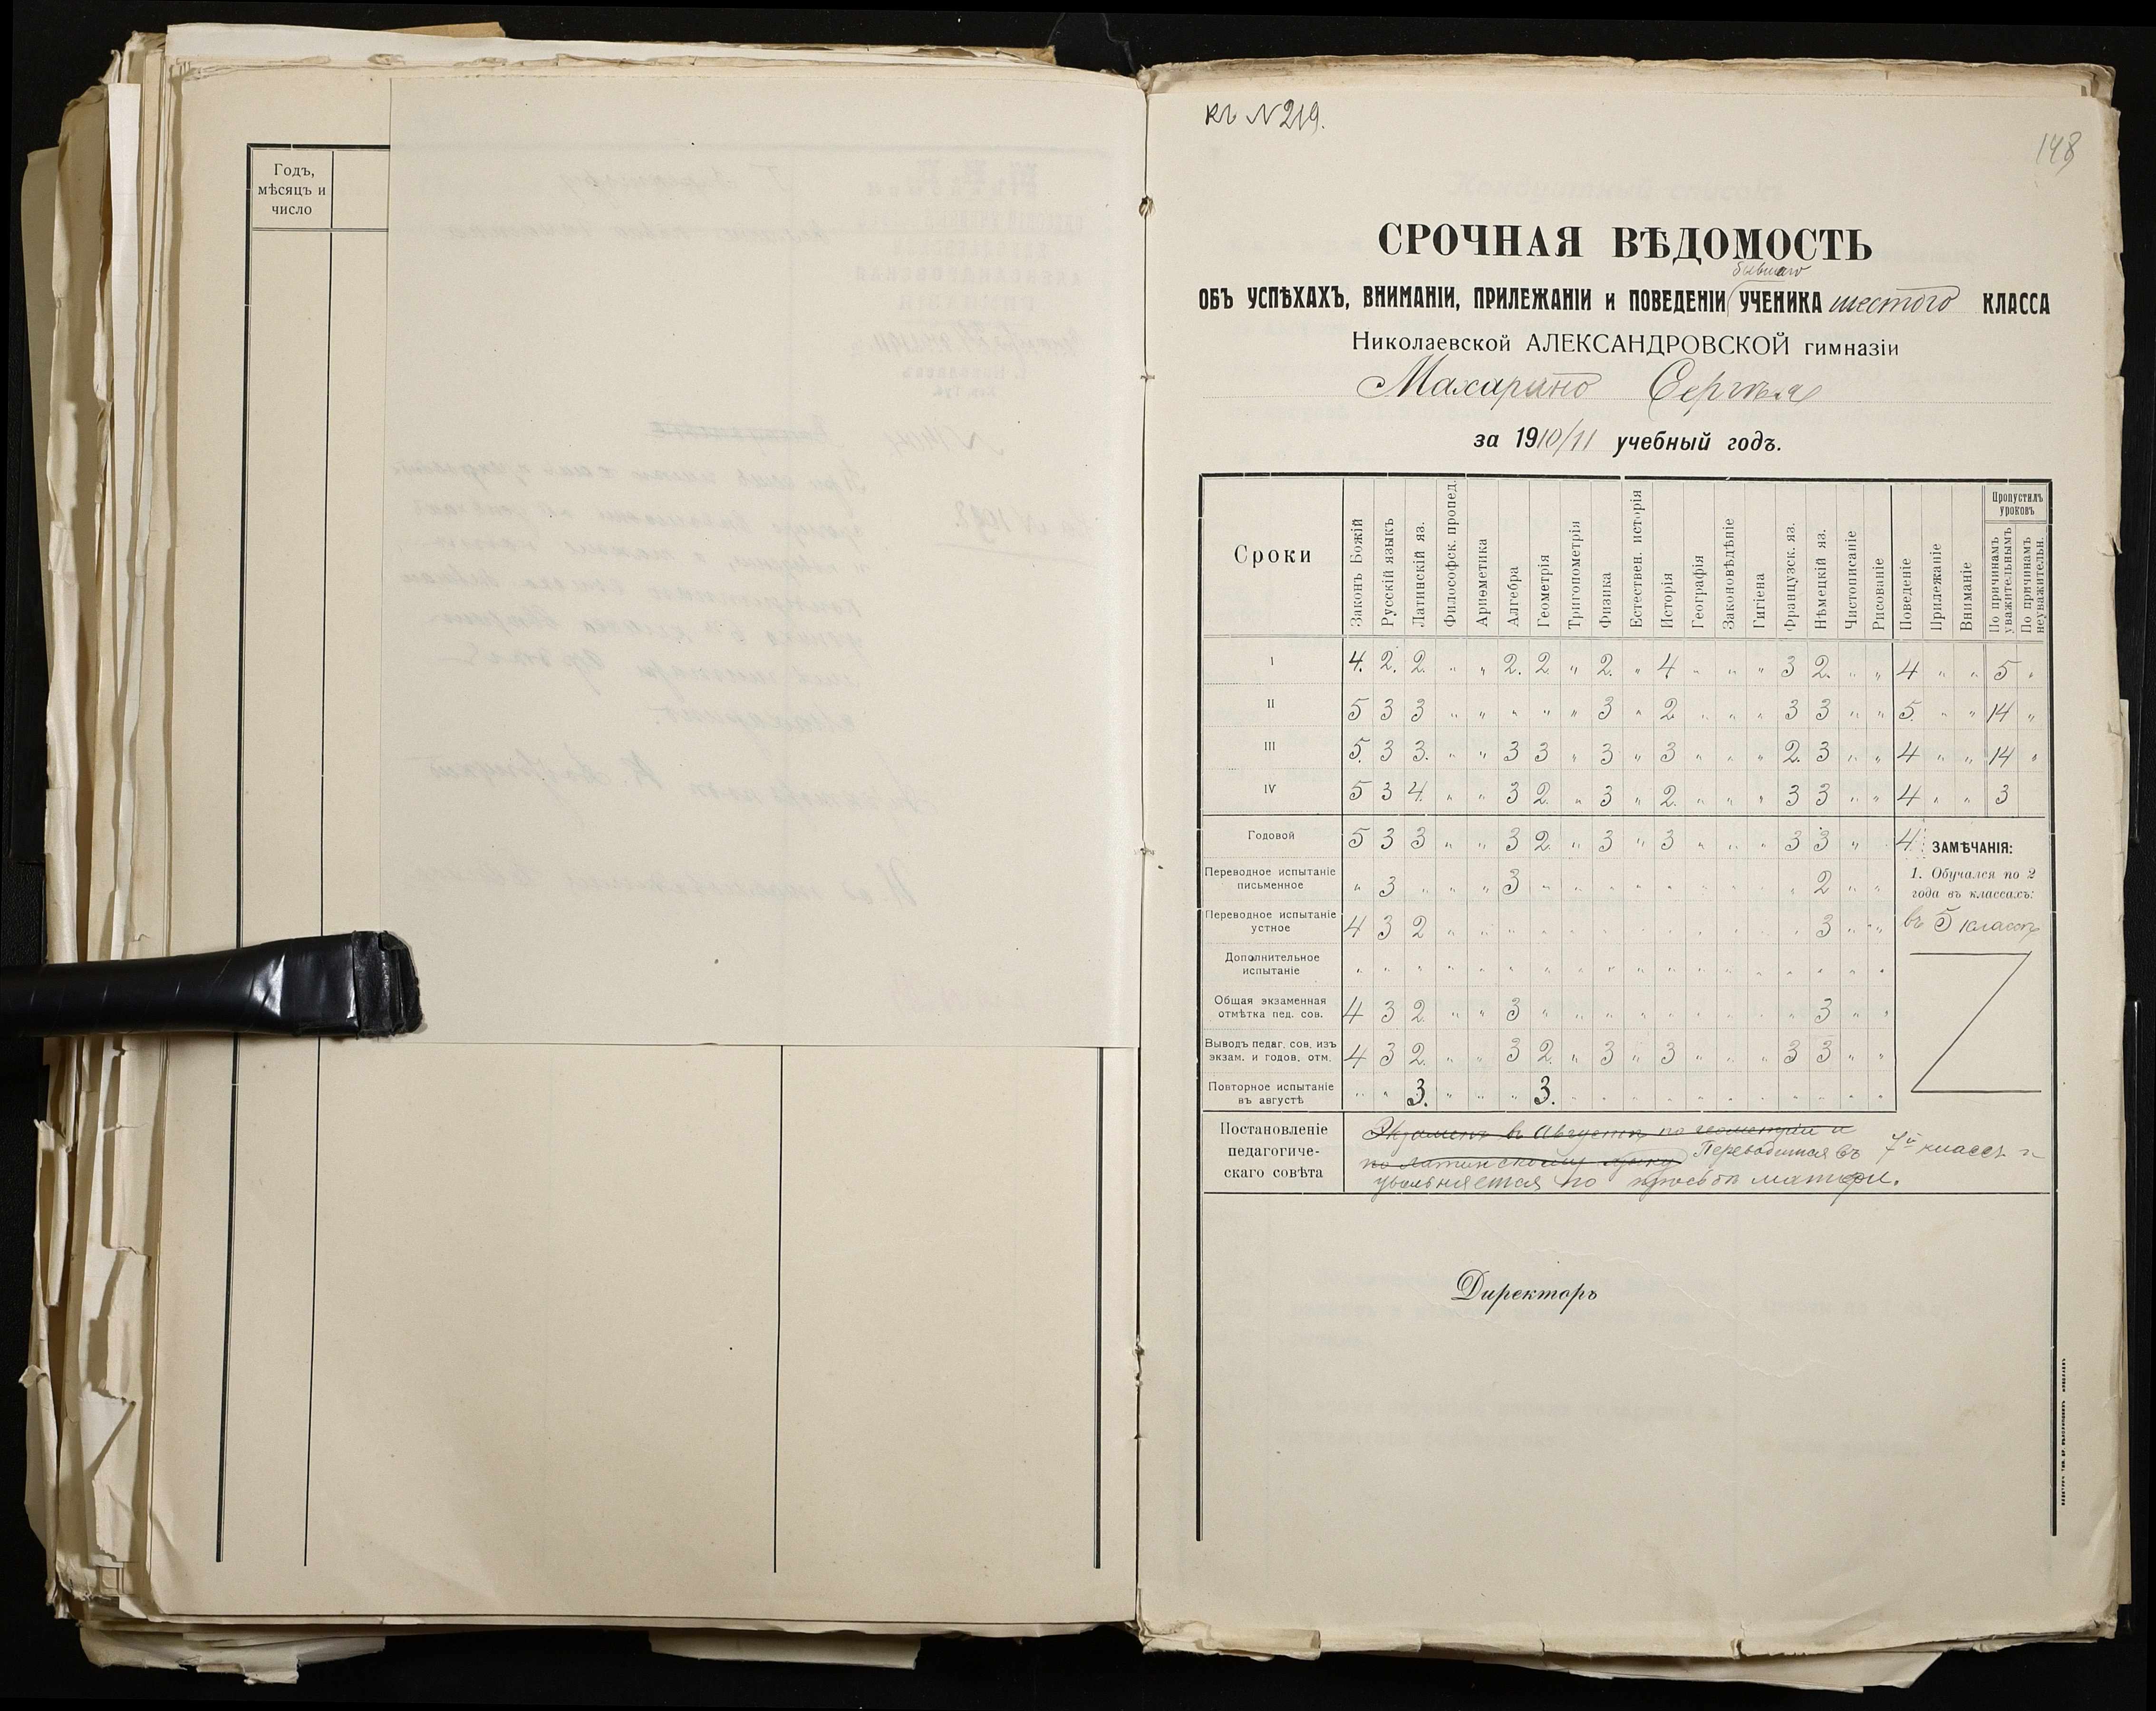 Годъ,
мѣсяцъ и
число
къ N 219.
148
СРОЧНАЯ ВѢДОМОСТЬ
бывшаго
ОБЪ УСПѢХАХЪ, ВНИМАНІИ, ПРИЛЕЖАНІИ и ПОВЕДЕНІИ УЧЕНИКА шестого КЛАССА
Николаевской АЛЕКСАНДРОВСКОЙ гимназіи
Махарино Сергѣя
за 1910/11 учебный годъ.
Сроки Законъ Божій Русскій языкъ Латинскій яз. Философск. пропед. Ариѳметика Алгебра Геометрія Тригонометрія Физика Естествен. исторія Исторія Географія Законовѣдѣніе Гигіена Французск. яз. Нѣмецкій яз. Чистописаніе Рисованіе Поведеніе Прилежаніе Вниманіе
Пропустилъ уроковъ
По причинамъ уважительнымъ
По причинамъ неуважительн.
I 4. 2. 2. " " 2. 2 " 2. " 4 " " " 3 2. " " 4 " " 5 "
II 5 3 3 " " " " " 3 " 2 " " " 3 3 " " 5. " " 14 "
III 5. 3 3. " " 3 3 " 3 " 3 " " " 2. 3 " " 4 " " 14 "
IV 5 3 4. " " 3 2. " 3 " 2. " " " 3 3 " " 4 " " 3
Годовой 5 3 3 " " 3 2. " 3 " 3 " " " 3 3 " 4.
ЗАМѢЧАНІЯ:
Переводное испытаніе
письменное " 3 " " " 3 " " " " " " " " " 2 " "
1. Обучался по 2
года въ классахъ:
въ 5 классѣ
Переводное испытаніе
устное 4 3 2 " " " " " " " " " " " " 3 " "
Дополнительное
испытаніе " " " " " " " " " " " " " " " " " "
Общая экзаменная
отмѣтка пед. сов. 4 3 2. " " 3 " " " " " " " " " 3 " "
Выводъ педаг. сов. изъ
экзам. и годов. отм. 4 3 2. " " 3 2. " 3 " 3 " " " 3 3 " "
Повторное испытаніе
въ августѣ " " 3. " " " 3. " " " " " " " " " " "
Постановленіе
педагогиче-
скаго совѣта
Экзаменъ въ Августѣ по геометріи и
по латинскому языку Переводится въ 7й классъ и
увольняется по просьбѣ матери.
Директоръ